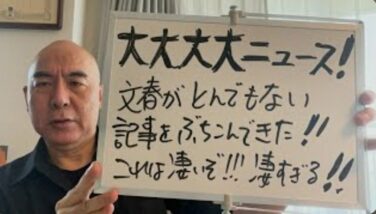 大大大大ニュース!
文春がとんでもない
記事をぶちこんできた!!
これは凄いぞ!!!凄すぎる!!